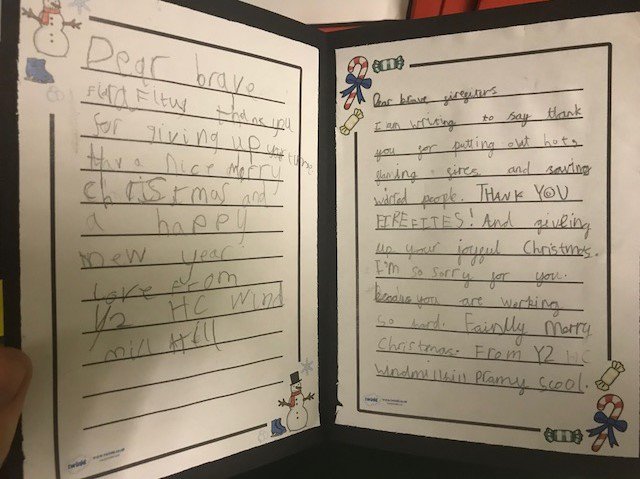 Dear brave
thank you
for giving up your time
have a nice merry
christmas and
a happy
new year
love from
Y2 HC wind
mill Hill
twinkl
Dear brave firefiters
I am writing to say thank
you for putting out hot,
flaming fires and saving
wirred people. THANK YOU
FIREFITES! And giveing
up your joyful Christmas.
I'm so sorry for you.
you are working
so hard. Fainlly Merry
Christmas. From Y2 HC
windmillhill Pramy scool.
twinkl